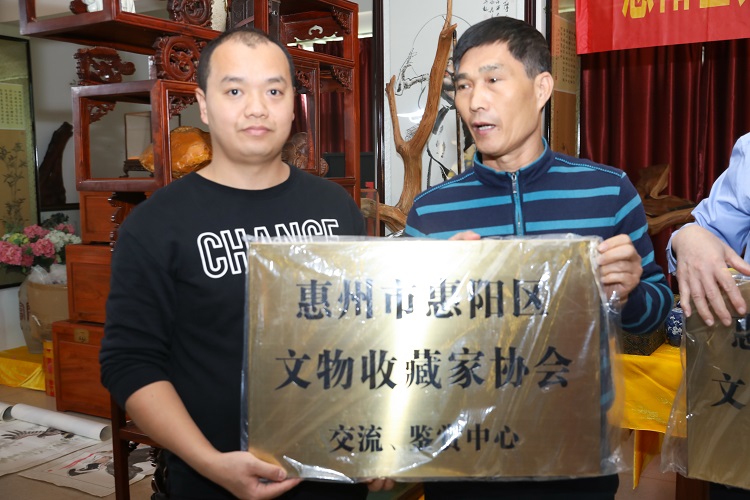 惠阳区
CHANGE
惠州市惠阳区
文物收藏家协会
交流、鉴赏中心
惠
文